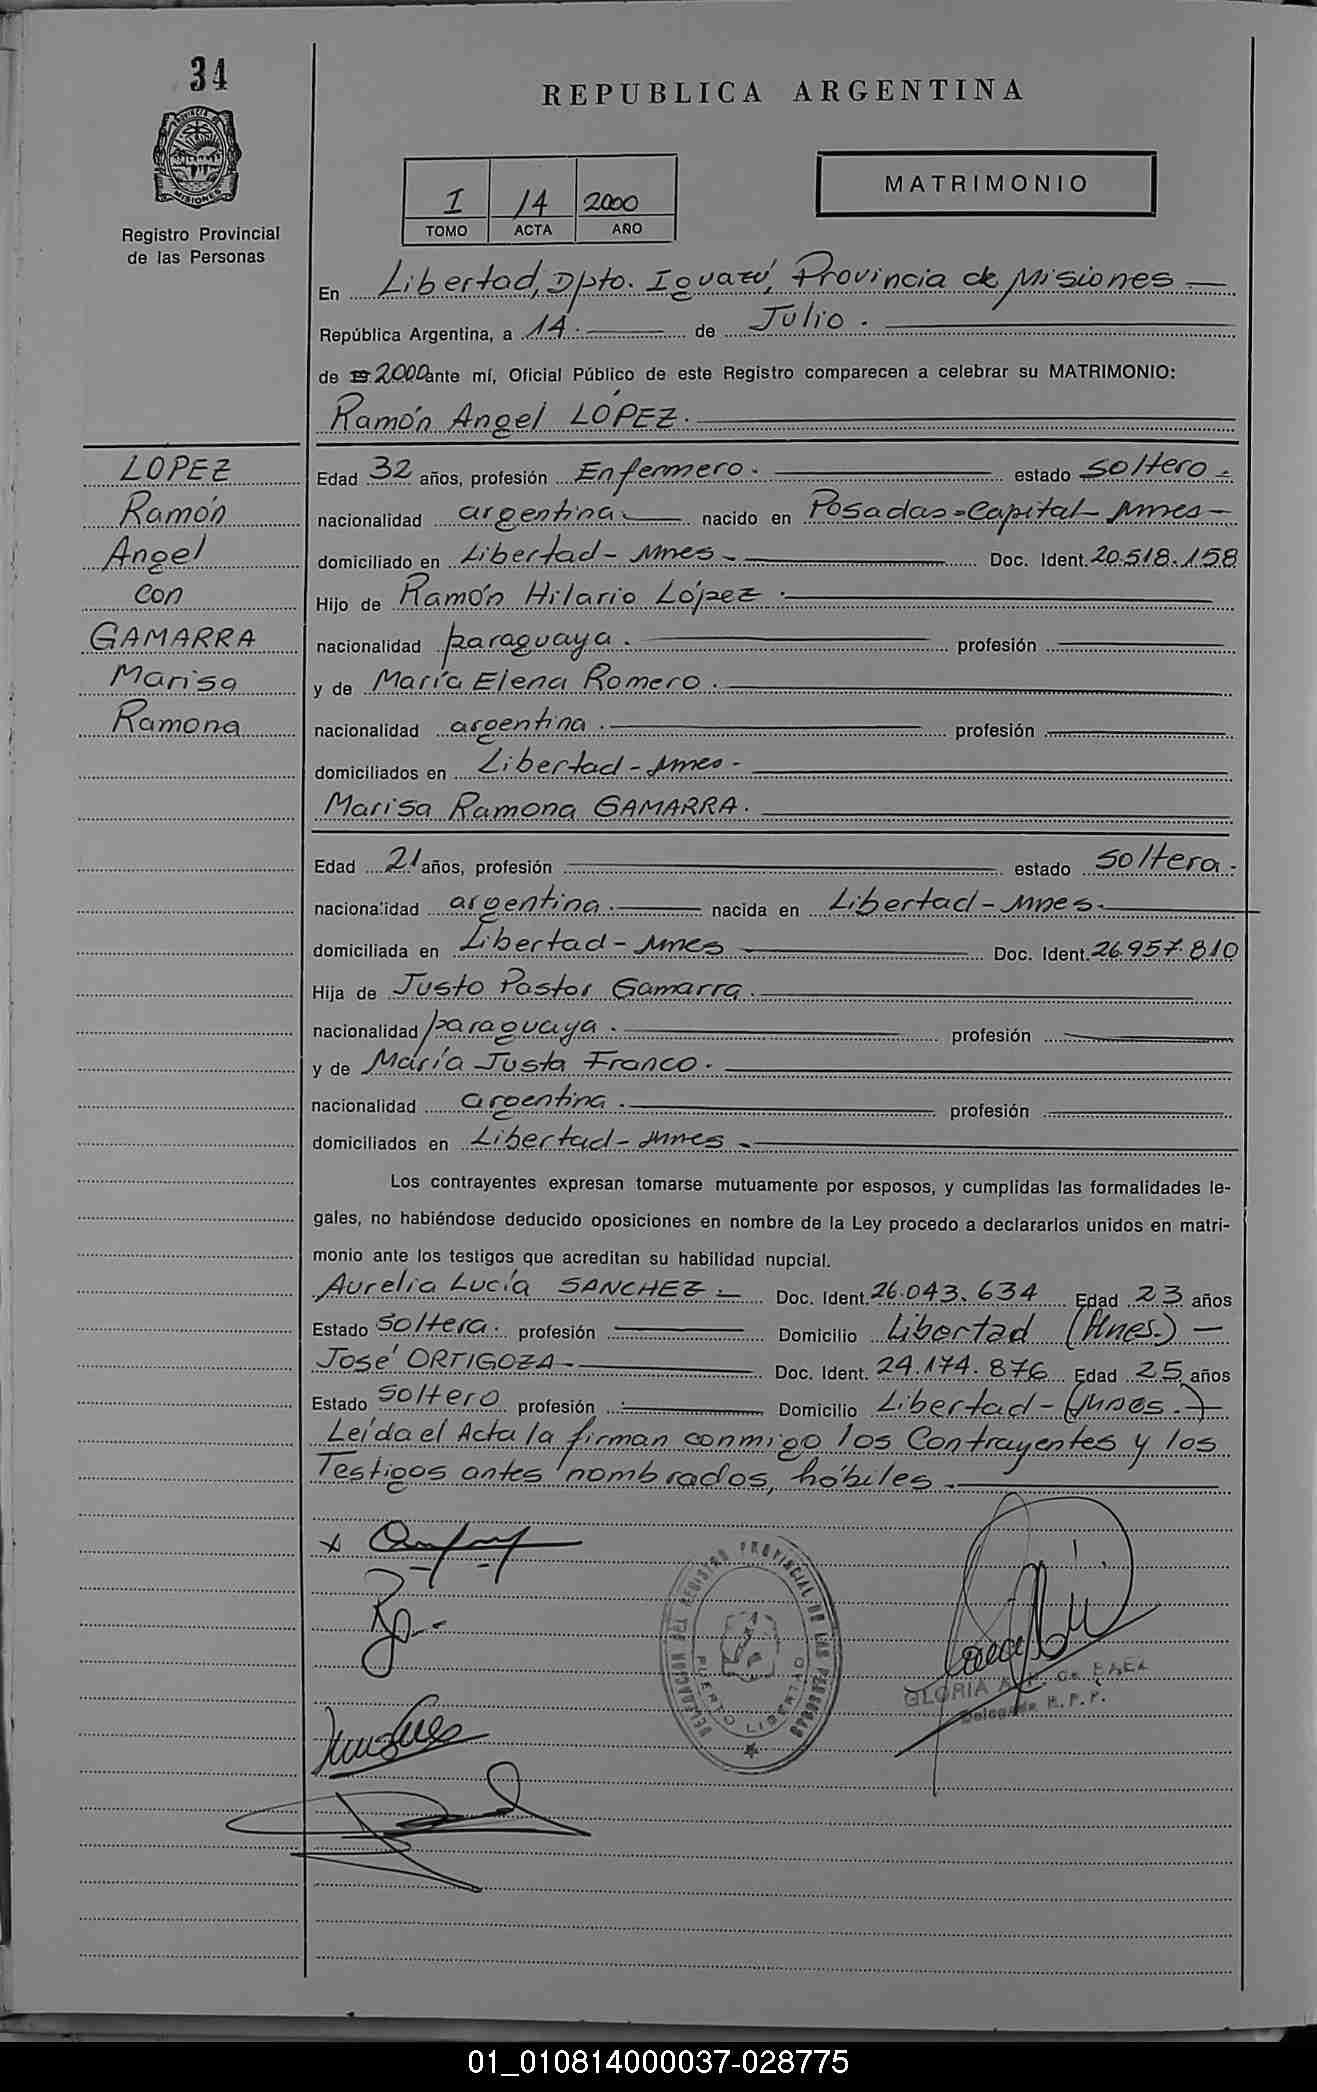 34
PROVINCIA DE
MISIONES
Registro Provincial
de las Personas
REPUBLICA ARGENTINA
I 14 2000
TOMO ACTA AÑO
MATRIMONIO
En Libertad, Dpto. Iguazú, Provincia de Misiones
República Argentina, a 14. de Julio.
de 19 2000 ante mí, Oficial Público de este Registro comparecen a celebrar su MATRIMONIO:
Ramón Angel LÓPEZ.
LOPEZ
Ramón
Angel
con
GAMARRA
Marisa
Ramona
Edad 32 años, profesión Enfermero. estado soltero.
nacionalidad argentina nacido en Posadas-Capital-Mnes-
domiciliado en Libertad-Mnes- Doc. Ident. 20.518.158
Hijo de Ramón Hilario López.
nacionalidad paraguaya. profesión
y de María Elena Romero.
nacionalidad argentina. profesión
domiciliados en Libertad-Mnes-
Marisa Ramona GAMARRA.
Edad 21 años, profesión estado soltera.
nacionalidad argentina. nacida en Libertad-Mnes.
domiciliada en Libertad-Mnes Doc. Ident. 26.957.810
Hija de Justo Pastor Gamarra.
nacionalidad paraguaya. profesión
y de María Justa Franco.
nacionalidad argentina. profesión
domiciliados en Libertad-Mnes-
Los contrayentes expresan tomarse mutuamente por esposos, y cumplidas las formalidades le-
gales, no habiéndose deducido oposiciones en nombre de la Ley procedo a declararlos unidos en matri-
monio ante los testigos que acreditan su habilidad nupcial.
Aurelia Lucía SANCHEZ.- Doc. Ident. 26.043.634 Edad 23 años
Estado soltera. profesión Domicilio Libertad (Mnes.) -
José ORTIGOZA- Doc. Ident. 24.174.876 Edad 25 años
Estado soltero profesión Domicilio Libertad-(Mnes.)-
Leída el Acta la firman conmigo los Contrayentes y los
Testigos antes nombrados, hábiles.
DELEGACION DEL REGISTRO PROVINCIAL DE LAS PERSONAS
PUERTO LIBERTAD
GLORIA A. de BAEZ
Delegada R. P. P.
01_010814000037-028775